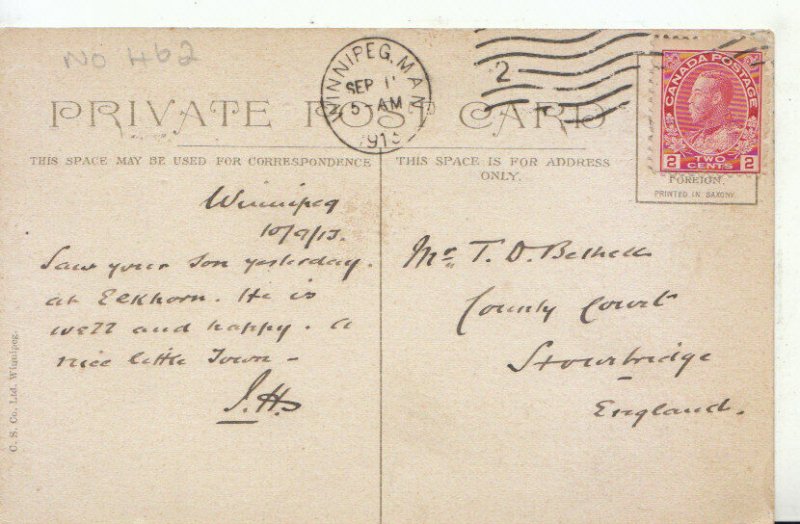 No 462
WINNIPEG, MAN.
SEP 11
5-AM
1913
2
CANADA POSTAGE
2 TWO CENTS 2
PRIVATE POST CARD
THIS SPACE MAY BE USED FOR CORRESPONDENCE
THIS SPACE IS FOR ADDRESS
ONLY.
FOREIGN,
PRINTED IN SAXONY
Winnipeg
10/9/13.
Saw your Son yesterday.
at Elkhorn. He is
well and happy. a
nice little Town -
J.H.
Mr T. D. Bethell
County Court
Stourbridge
England.
O. S. Co. Ltd. Winnipeg.